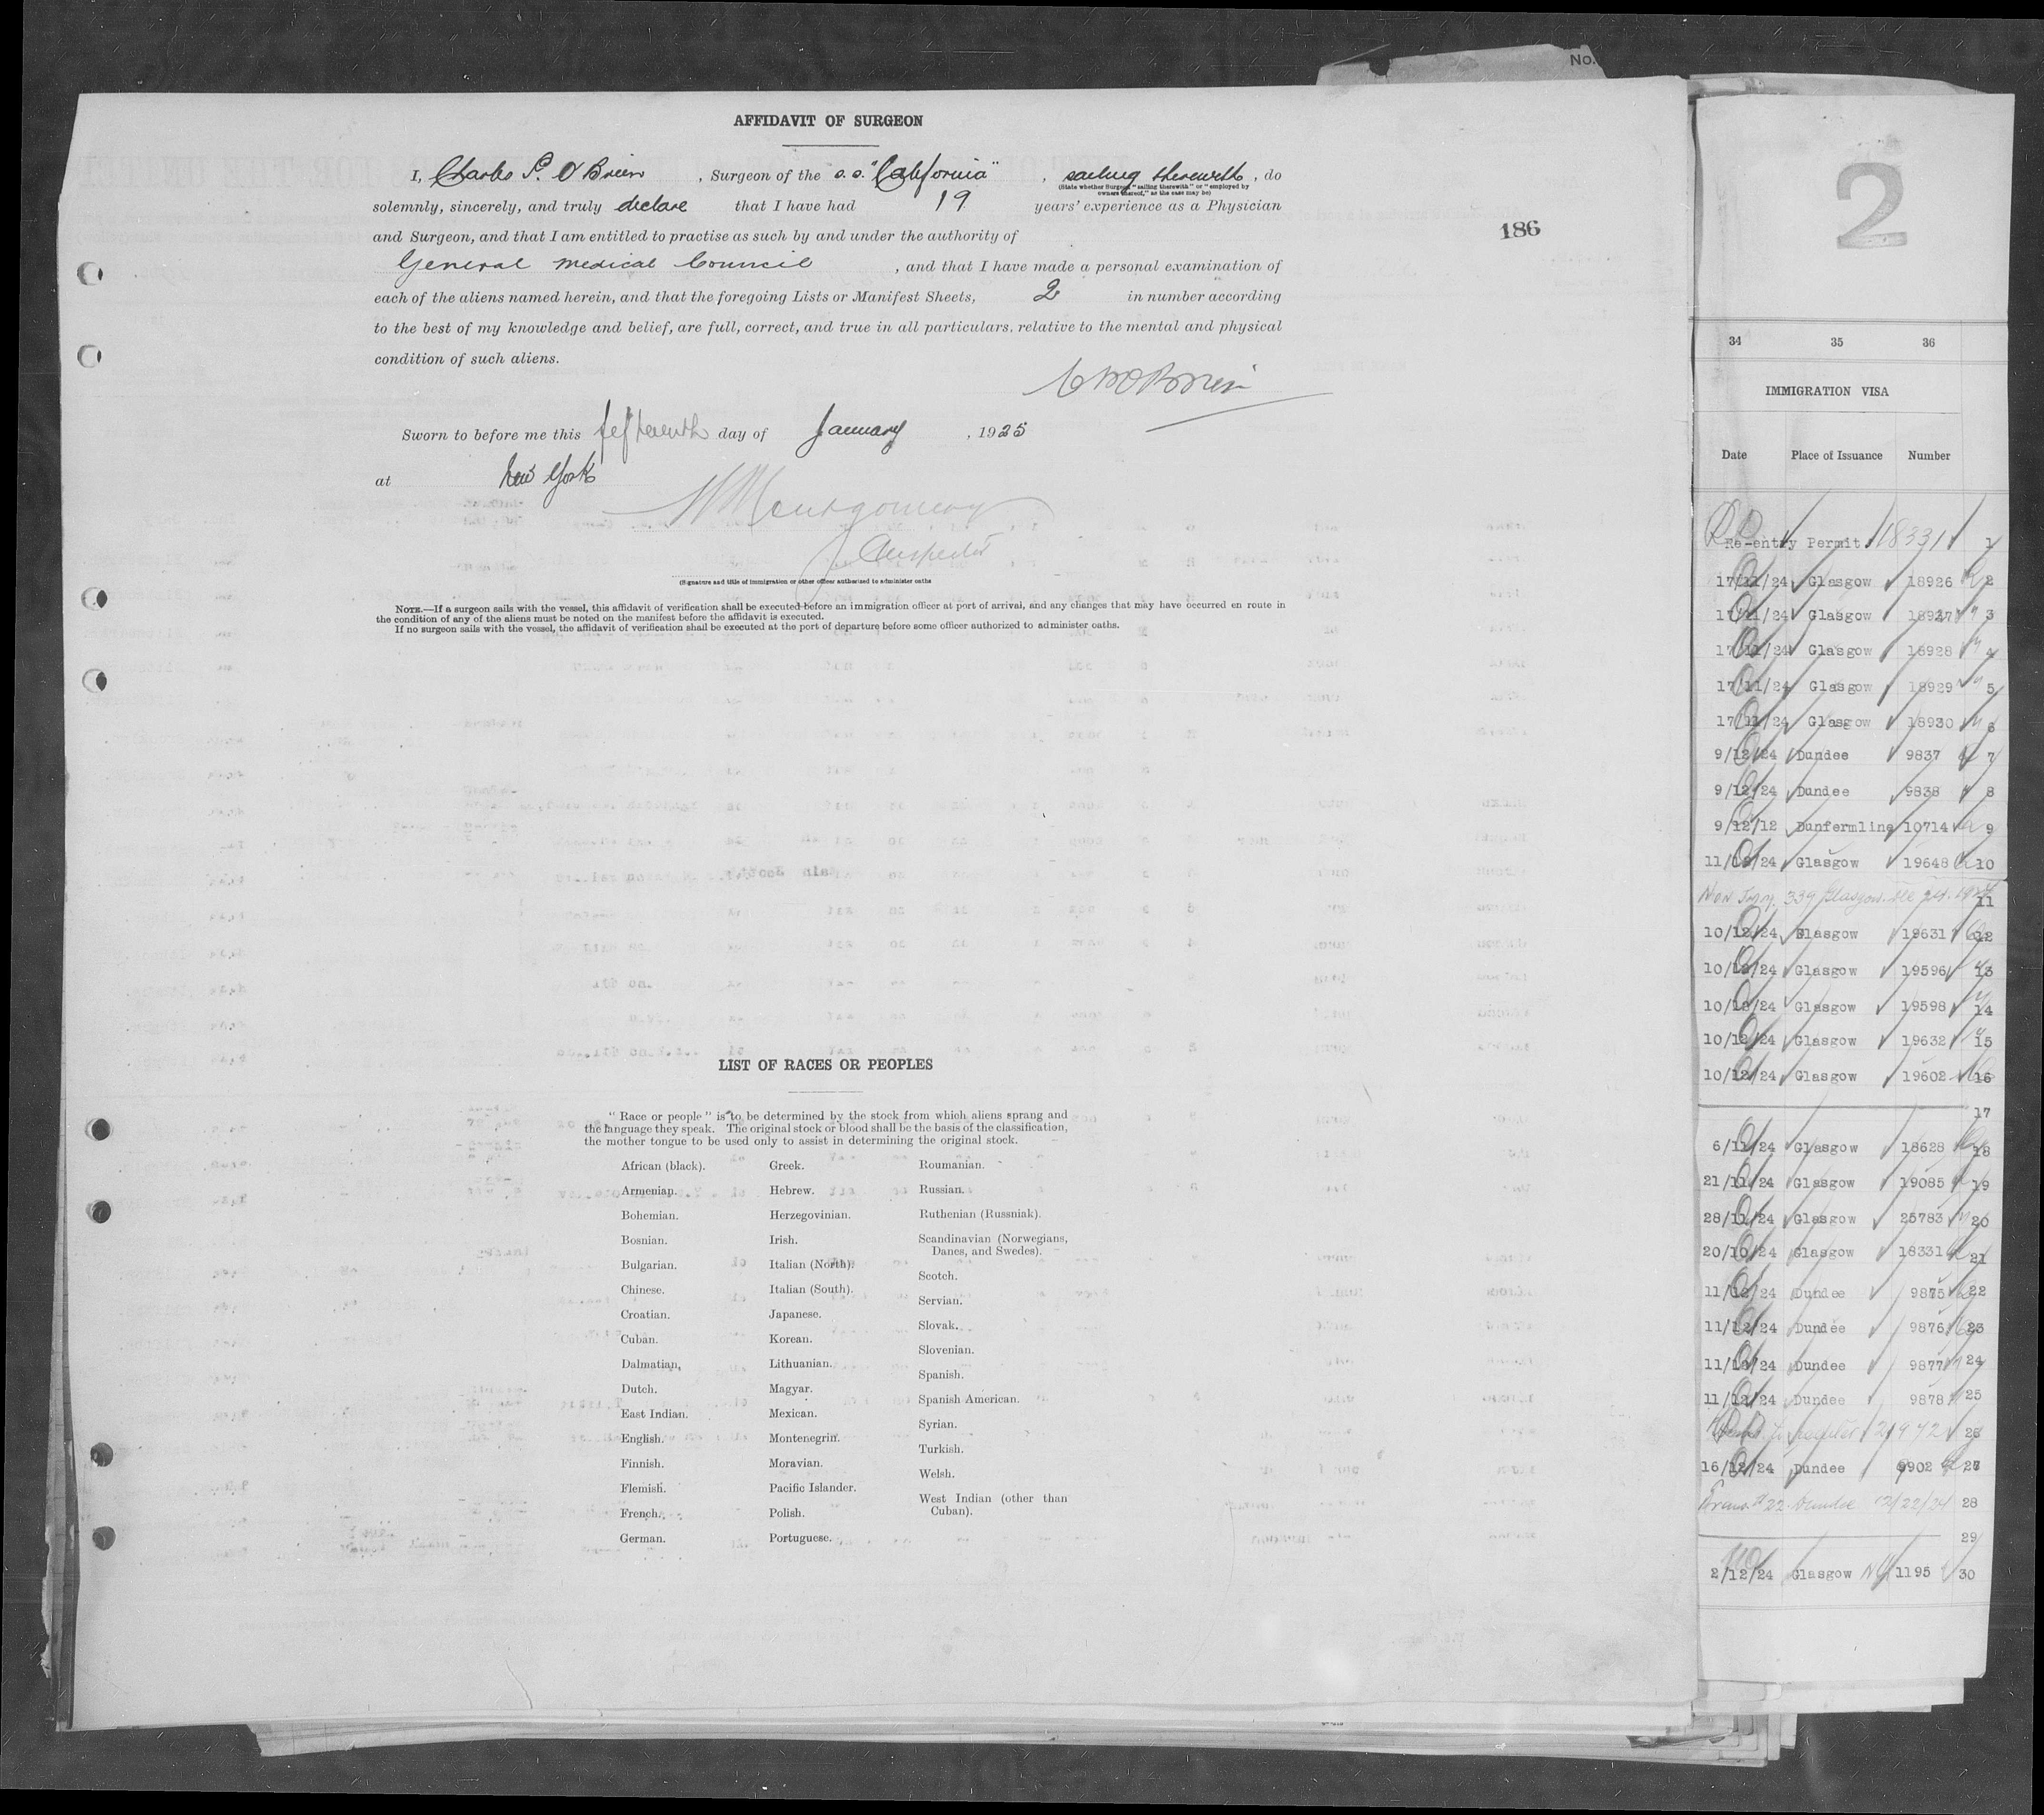 No.
AFFIDAVIT OF SURGEON
I, Charles P. O'Brien, Surgeon of the s.s. "California", sailing therewith, do
(State whether Surgeon "sailing therewith" or "employed by
owners thereof," as the case may be)
solemnly, sincerely, and truly declare that I have had 19 years' experience as a Physician
and Surgeon, and that I am entitled to practise as such by and under the authority of
General Medical Council, and that I have made a personal examination of
each of the aliens named herein, and that the foregoing Lists or Manifest Sheets, 2 in number according
to the best of my knowledge and belief, are full, correct, and true in all particulars, relative to the mental and physical
condition of such aliens.
186
Sworn to before me this fifteenth day of January, 1925
at New York
Montgomery
Inspector
(Signature and title of immigration or other officer authorised to administer oaths
NOTE.—If a surgeon sails with the vessel, this affidavit of verification shall be executed before an immigration officer at port of arrival, and any changes that may have occurred en route in
the condition of any of the aliens must be noted on the manifest before the affidavit is executed.
If no surgeon sails with the vessel, the affidavit of verification shall be executed at the port of departure before some officer authorized to administer oaths.
LIST OF RACES OR PEOPLES
"Race or people" is to be determined by the stock from which aliens sprang and
the language they speak. The original stock or blood shall be the basis of the classification,
the mother tongue to be used only to assist in determining the original stock.
African (black).
Armenian.
Bohemian.
Bosnian.
Bulgarian.
Chinese.
Croatian.
Cuban.
Dalmatian,
Dutch.
East Indian.
English.
Finnish.
Flemish.
French.
German.
Greek.
Hebrew.
Herzegovinian.
Irish.
Italian (North).
Italian (South).
Japanese.
Korean.
Lithuanian.
Magyar.
Mexican.
Montenegrin.
Moravian.
Pacific Islander.
Polish.
Portuguese.
Roumanian.
Russian.
Ruthenian (Russniak).
Scandinavian (Norwegians,
Danes, and Swedes).
Scotch.
Servian.
Slovak.
Slovenian.
Spanish.
Spanish American.
Syrian.
Turkish.
Welsh.
West Indian (other than
Cuban).
2
34 35 36
IMMIGRATION VISA
Date Place of Issuance Number
Re-entry Permit 18331 1
17/11/24 Glasgow 18926 2
17/11/24 Glasgow 18927 3
17/11/24 Glasgow 18928 4
17/11/24 Glasgow 18929 5
17/11/24 Glasgow 18930 6
9/12/24 Dundee 9837 7
9/12/24 Dundee 9838 8
9/12/12 Dunfermline 10714 9
11/12/24 Glasgow 19648 10
Non Imm. 339 Glasgow 11
10/12/24 Glasgow 19631 12
10/12/24 Glasgow 19596 13
10/12/24 Glasgow 19598 14
10/12/24 Glasgow 19632 15
10/12/24 Glasgow 19602 16
17
6/11/24 Glasgow 18628 18
21/11/24 Glasgow 19085 19
28/11/24 Glasgow 25783 20
20/10/24 Glasgow 18331 21
11/12/24 Dundee 9875 22
11/12/24 Dundee 9876 23
11/12/24 Dundee 9877 24
11/12/24 Dundee 9878 25
21942 26
16/12/24 Dundee 9902 27
Trans. #22 Dundee 12/22/24 28
29
2/12/24 Glasgow 1195 30